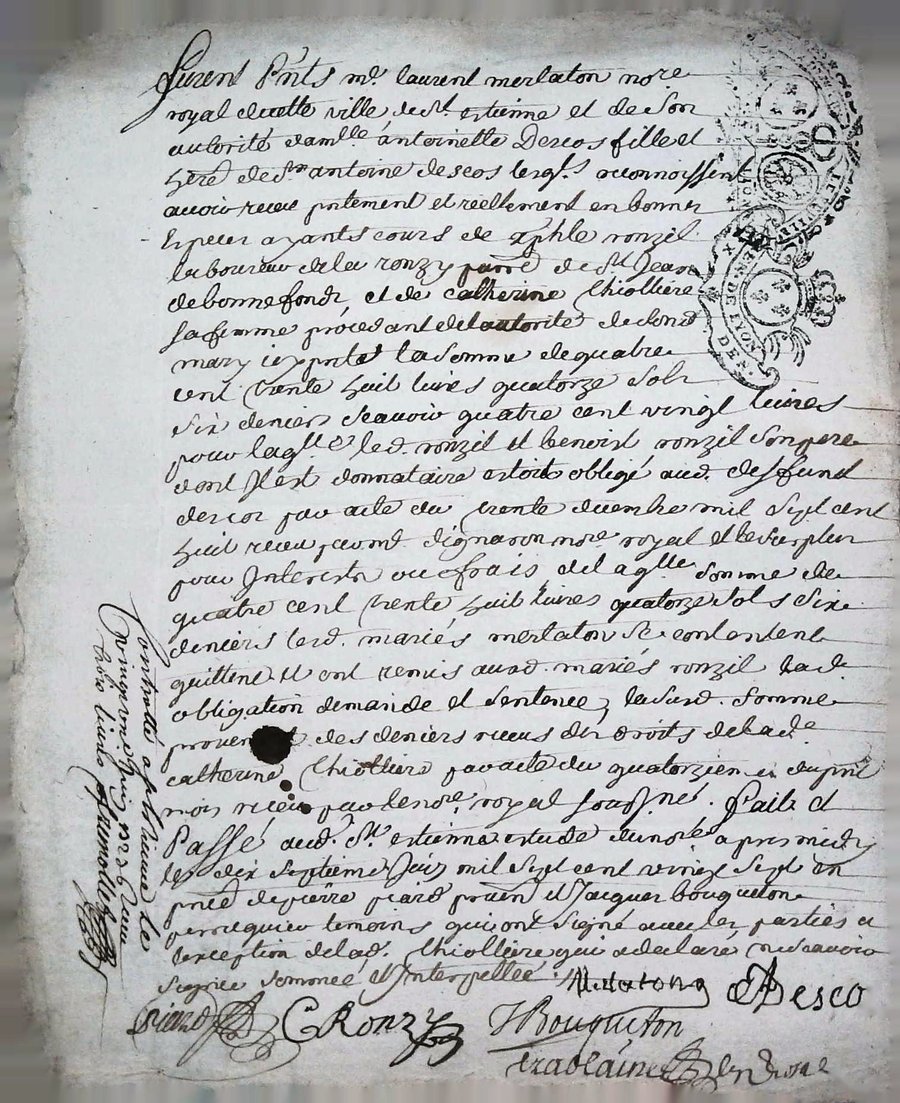 furent Pnts me. laurent merlaton nore
royal de cette ville de st. estienne et de son
autorité damlle antoinette Descos fille et
here de sr antoine descos lesqls. reconnoissent
auoir receu pntement et reellement en bonnes
Especes ayants cours de xphle ronzil
laboureur de la ronzy parre de st Jean
de bonnefond, et de catherine Thiolliere
sa femme procedant de lautorite de sond
mary icy pnte la somme de quatre
cent trente huit liures quatorze sols
six deniers scauoir quatre cent vingt liures
pour laqlle led. ronzil et benoist ronzil son pere
dont Il est donnataire estoit obligé aud. deffunt
descos par acte du trente mil sept cent
huit receu par mre dignaron nore. royal et le surplus
pour Interests ou frais de laqlle somme de
quatre cent trente huit liures quatorze sols six
deniers lesd. mariés merlaton se contentent
quittent et ont remis ausd. mariés ronzil lad.
obligation demande et sentence, lasusd. somme
prouent des deniers receus des droits de lade
catherine Thiolliere par acte du quatorzieme du pnt
mois receu par le nore royal sousigné. Fait et
Passé aud. st. estienne estude du nore apres midy
le dix septieme Juin mil sept cent vingt sept en
pnce de pierre piard et Jacques bouqueton
perruquier temoins qui ont signé auec les parties a
lexception de lad. Thiolliere qui a declare ne scauoir
signer sommée et Interpellée.
Merlaton ADesco
piard CRonzy JBouqueton
Controllé a st estienne le
vingt Juin 1727 receu
trois liures
GEN DE LYON